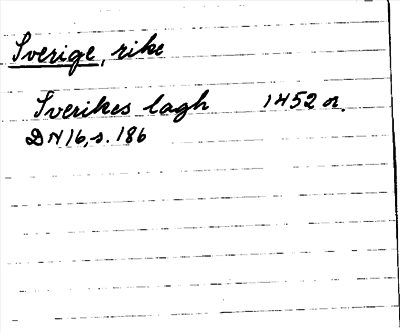 Sverige, rike
Sverikes lagh 1452 or.
DN 16, s. 186